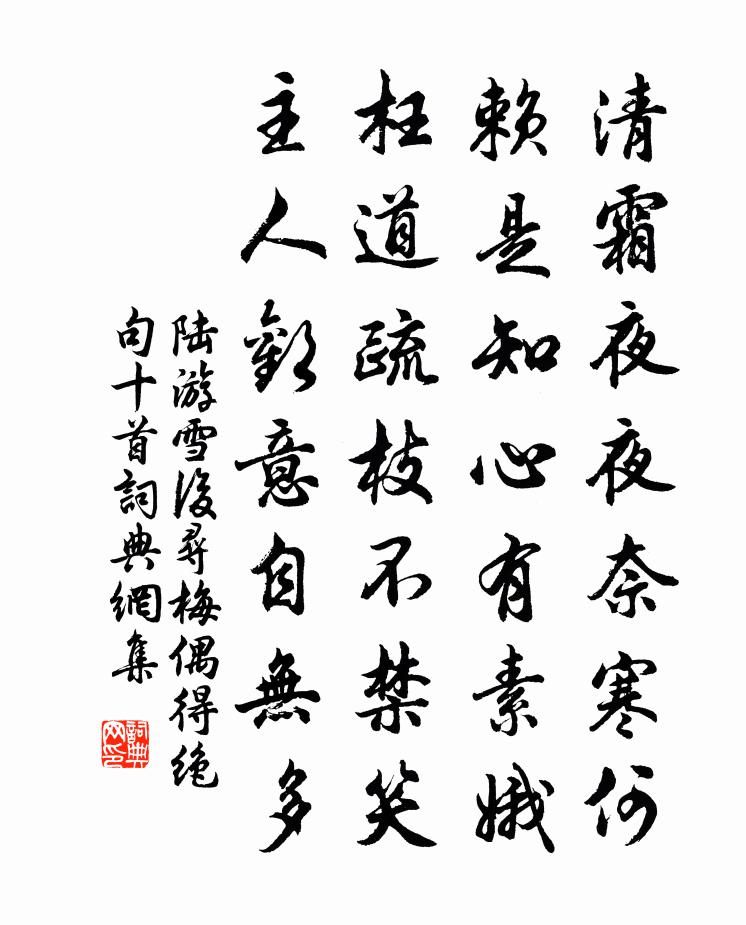 清霜夜夜奈寒何
賴是知心有素娥
枉道疏枝不禁笑
主人歡意自無多
陆游雪後尋梅偶得絶
句十首詞典網集
詞典网印